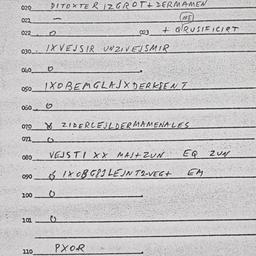 020 DITOXTER IZGROT + ZERMAMEN
021 —
022 0 023 + GRUSIFICIRT
030 IXVEJSIR UNZIVEJSMIR
040 0
050 IXOBEMGLAJXDERKSENT
060 0
070 ZIDERLEJLDERMAMENALES
071 0
080 VEJSTI XX MAJ+ZUN EQ ZUN
090 IXOBGPJLEJNTZVEG+ EM
100 0
101 0
110 PXOR